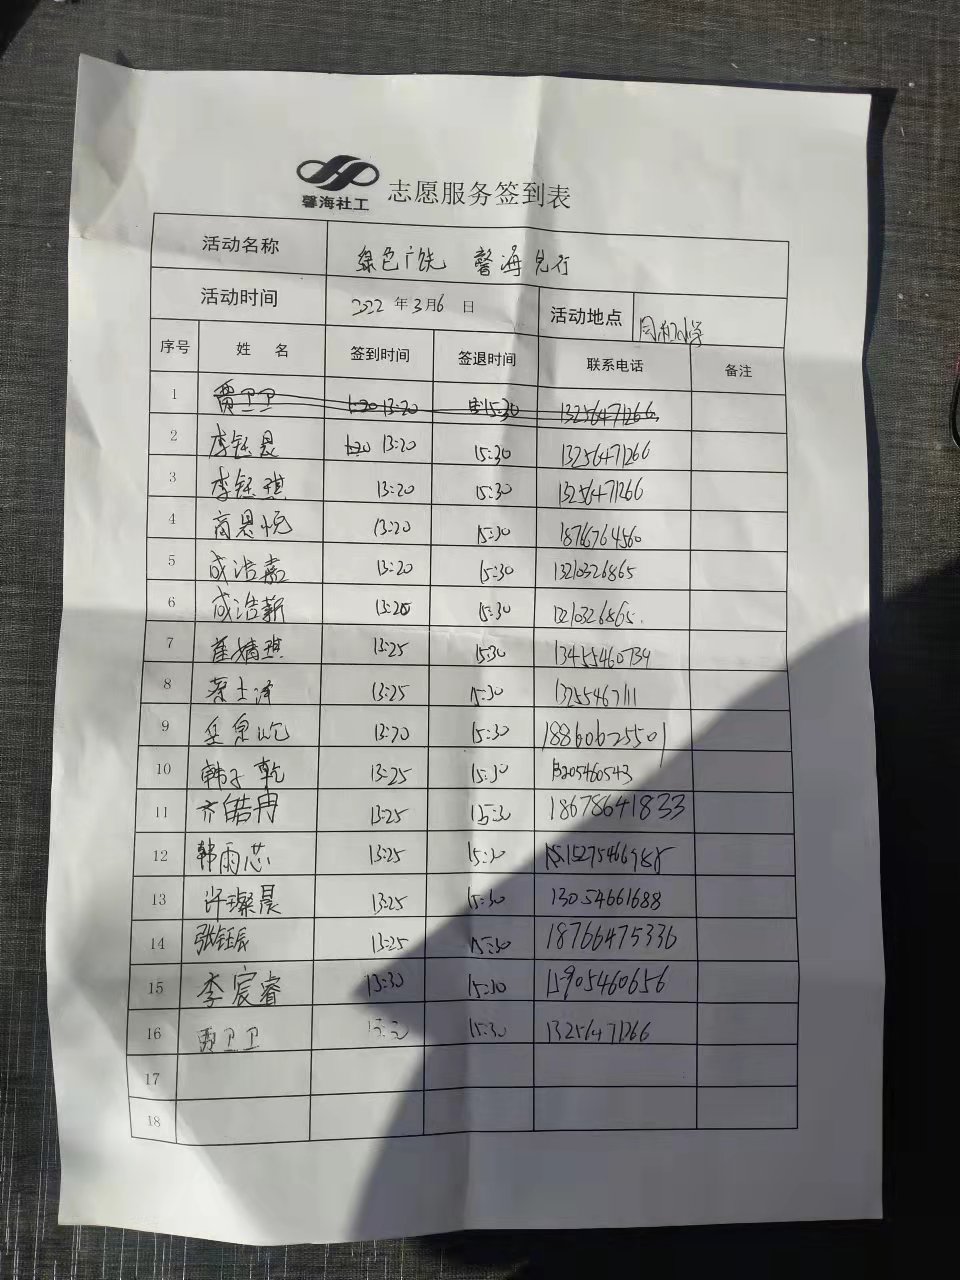 馨海社工
志愿服务签到表
活动名称 绿色广饶 馨海先行
活动时间 2022年3月6日 活动地点 同和小学
序号 姓名 签到时间 签退时间 联系电话 备注
1 贾卫卫 1:20 13:20 15:30 13256471266
2 李钰昊 1:20 13:20 15:30 13256471266
3 李钰琪 13:20 15:30 13256471266
4 高恩悦 13:20 15:30 18766764560
5 成浩嘉 13:20 15:30 13210326865
6 成浩新 13:20 15:30 13210326865
7 13:25 15:30 13455460734
8 13:25 15:30 13255467111
9 13:20 15:30 18860625501
10 韩子乾 13:25 15:30 13205460543
11 齐皓冉 13:25 15:30 18678641833
12 韩雨芯 13:25 15:30 15275466988
13 许璨晨 13:25 15:30 13054661688
14 张钰辰 13:25 15:30 18766475336
15 李宸睿 13:30 15:30 15905460656
16 贾卫卫 15:30 13256471266
17
18